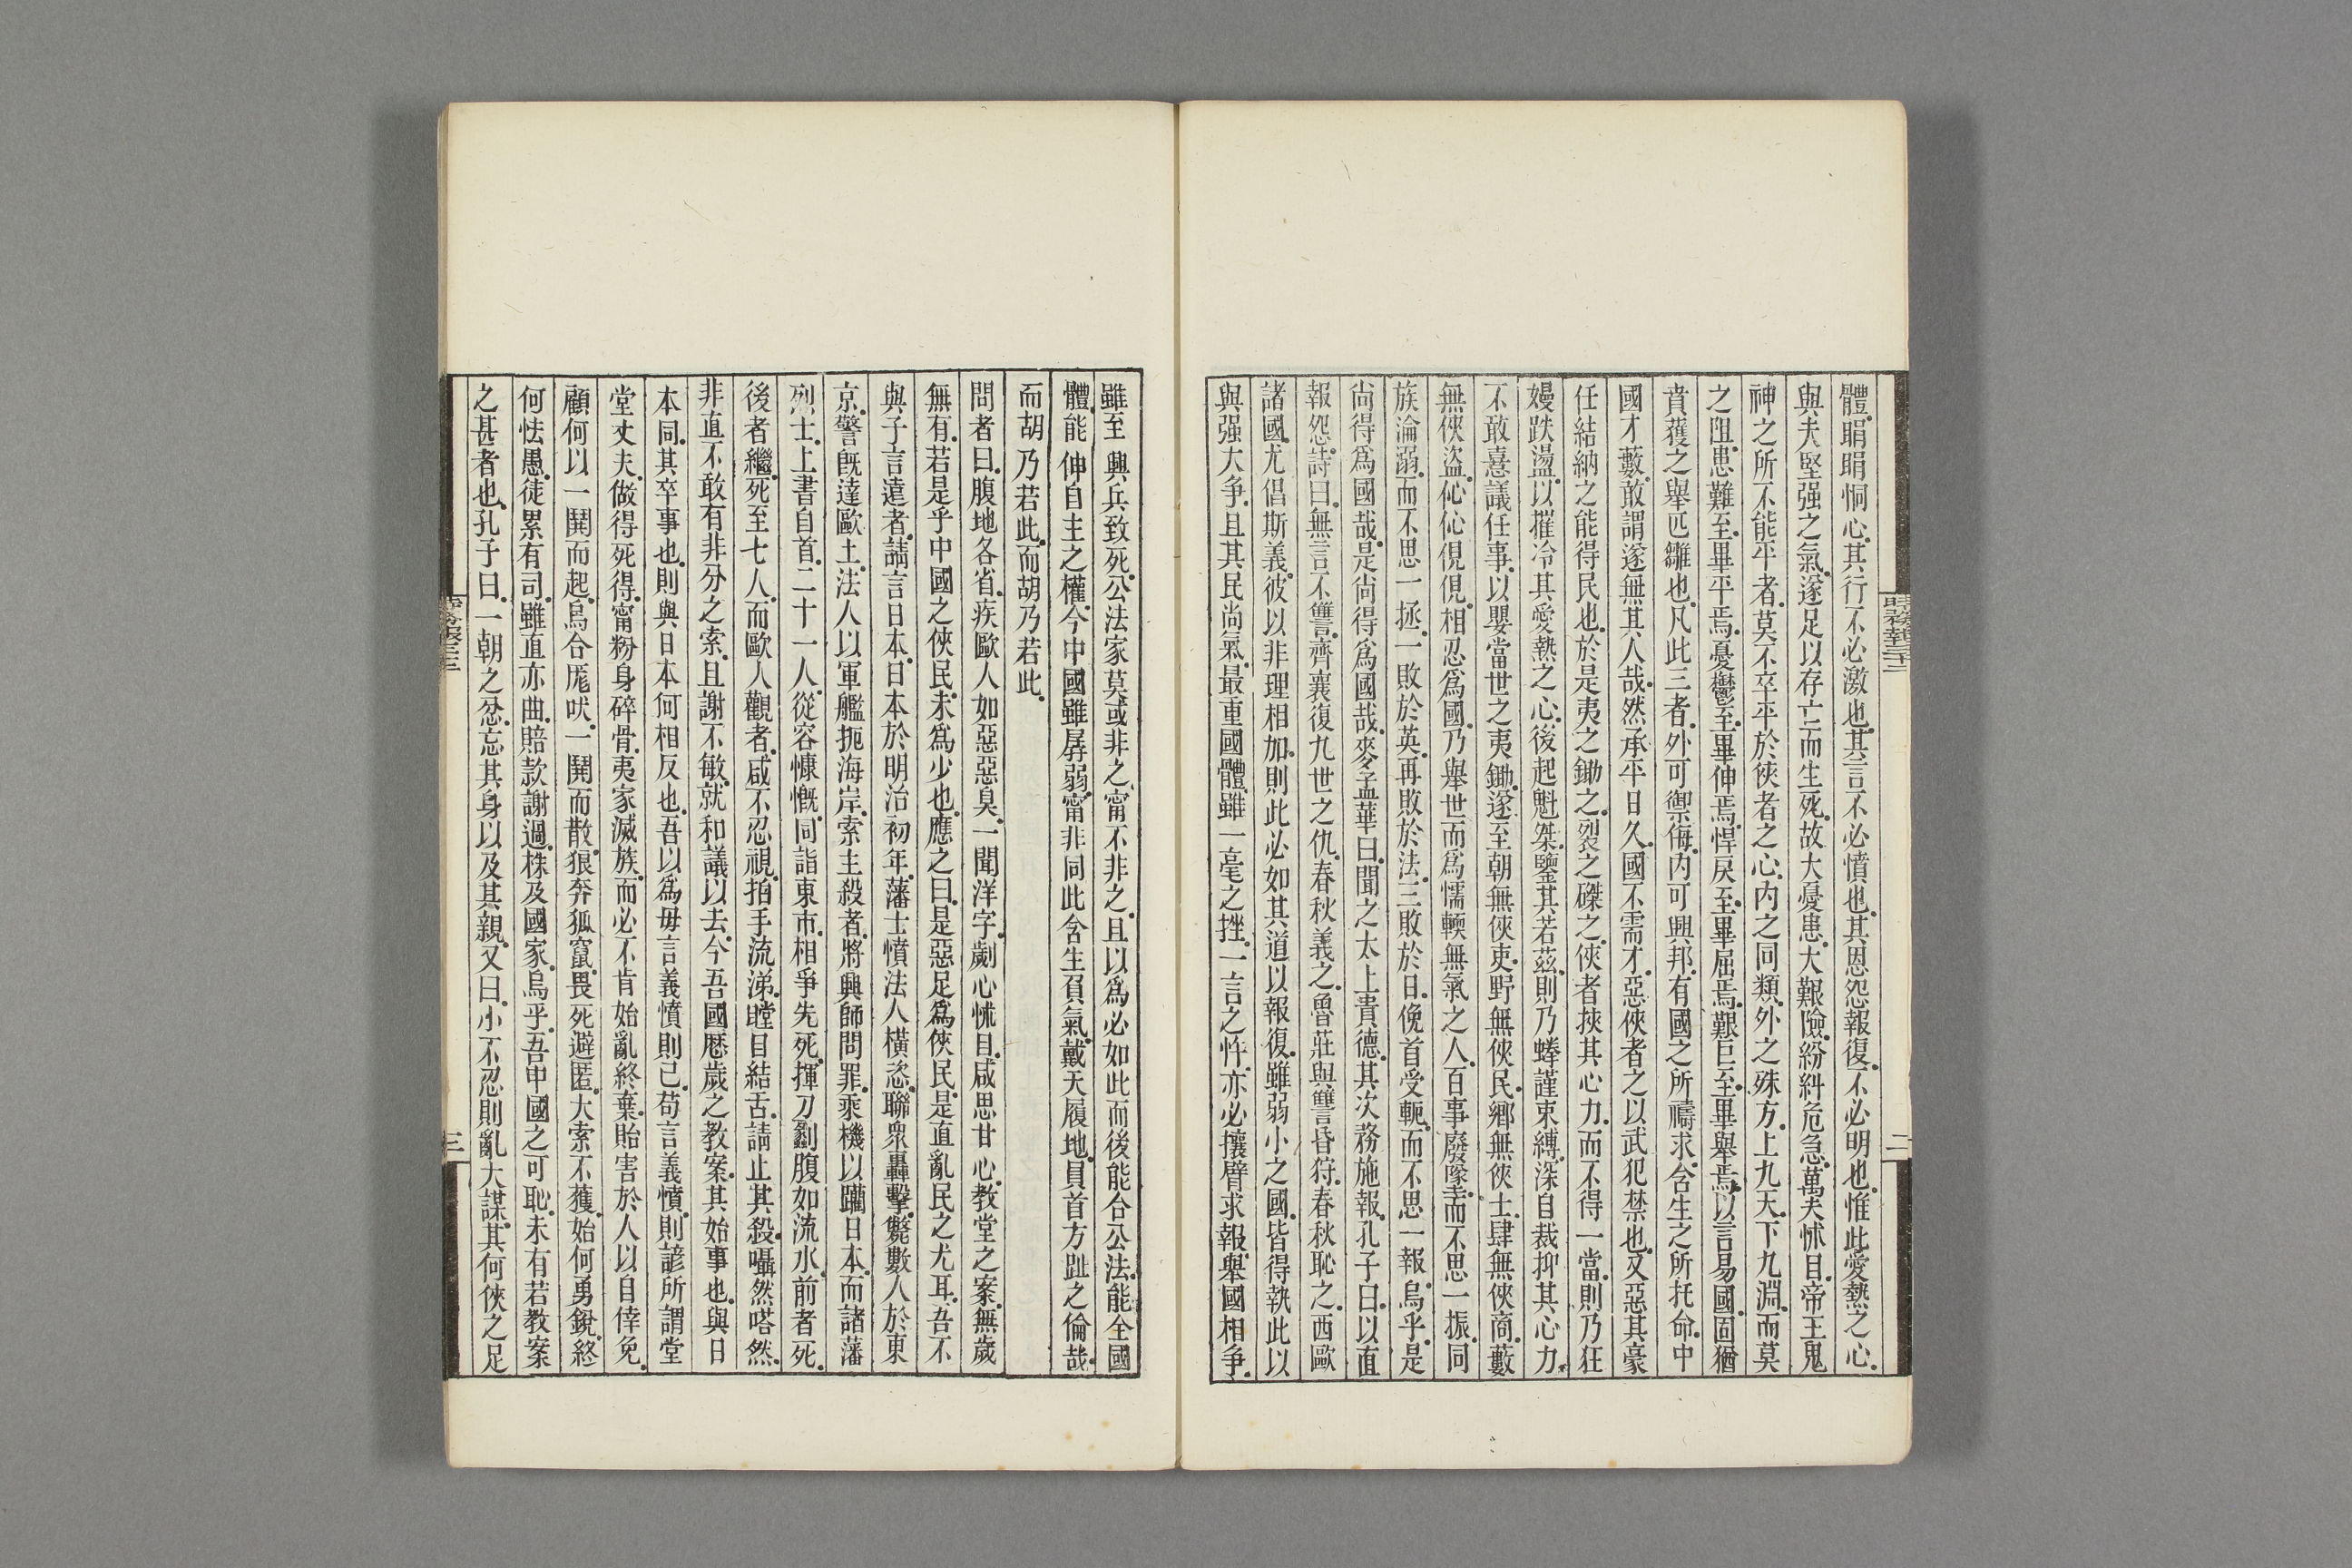 體睊睊恫心其行不必激也其言不必憤也其恩怨報復不必明也惟此愛熱之心
與夫堅强之氣遂足以存亡而生死故大憂患大艱險紛糾危急萬夫怵目帝王鬼
神之所不能平者莫不卒平於俠者之心內之同類外之殊方上九天下九淵而莫
之阻患難至畢平焉憂鬱至畢伸焉悍戾至畢屈焉艱巨至畢舉焉以言易國固猶
賁獲之舉匹雛也凡此三者外可禦侮內可興邦有國之所禱求含生之所托命中
國才藪敢謂遂無其人哉然承平日久國不需才惡俠者之以武犯禁也又惡其豪
任結納之能得民也於是夷之鋤之裂之磔之俠者挾其心力而不得一當則乃狂
嫚跌盪以摧冷其愛熱之心後起魁桀鑒其若茲則乃蜷謹束縛深自裁抑其心力
不敢憙議任事以嬰當世之夷鋤遂至朝無俠吏野無俠民鄉無俠士肆無俠商藪
無俠盜伈伈俔俔相忍爲國乃舉世而爲懦輭無氣之人百事廢墜而不思一振同
族淪溺而不思一拯一敗於英再敗於法三敗於日俛首受軛而不思一報烏乎是
尙得爲國哉是尙得爲國哉麥孟華曰聞之太上貴德其次務施報孔子曰以直
報怨詩曰無言不讐齊襄復九世之仇春秋義之魯莊與讐昏狩春秋恥之西歐
諸國尤倡斯義彼以非理相加則此必如其道以報復雖弱小之國皆得執此以
與强大争且其民尙氣最重國體雖一毫之挫一言之忤亦必攘臂求報舉國相争
時務報三十二
二
雖至興兵致死公法家莫或非之甯不非之且以爲必如此而後能合公法能全國
體能伸自主之權今中國雖孱弱甯非同此含生負氣戴天履地員首方趾之倫哉
而胡乃若此而胡乃若此
問者曰腹地各省疾歐人如惡惡臭一聞洋字劌心怵目咸思甘心教堂之案無歲
無有若是乎中國之俠民未爲少也應之曰是惡足爲俠民是直亂民之尤耳吾不
與子言遠者請言日本日本於明治初年藩士憤法人橫恣聯衆轟擊斃數人於東
京警旣達歐土法人以軍艦扼海岸索主殺者將興師問罪乘機以躪日本而諸藩
烈士上書自首二十一人從容慷慨同詣東市相爭先死揮刀劙腹如流水前者死
後者繼死至七人而歐人觀者咸不忍視拍手流涕瞠目結舌請止其殺囁然嗒然
非直不敢有非分之索且謝不敏就和議以去今吾國歷歲之教案其始事也與日
本同其卒事也則與日本何相反也吾以爲毋言義憤則已苟言義憤則諺所謂堂
堂丈夫做得死得甯粉身碎骨夷家滅族而必不肯始亂終棄貽害於人以自倖免
顧何以一鬨而起烏合厖吠一鬨而散狼奔狐竄畏死避匿大索不獲始何勇銳終
何怯愚徒累有司雖直亦曲賠款謝過株及國家烏乎吾中國之可恥未有若教案
之甚者也孔子曰一朝之忿忘其身以及其親又曰小不忍則亂大謀其何俠之足
三